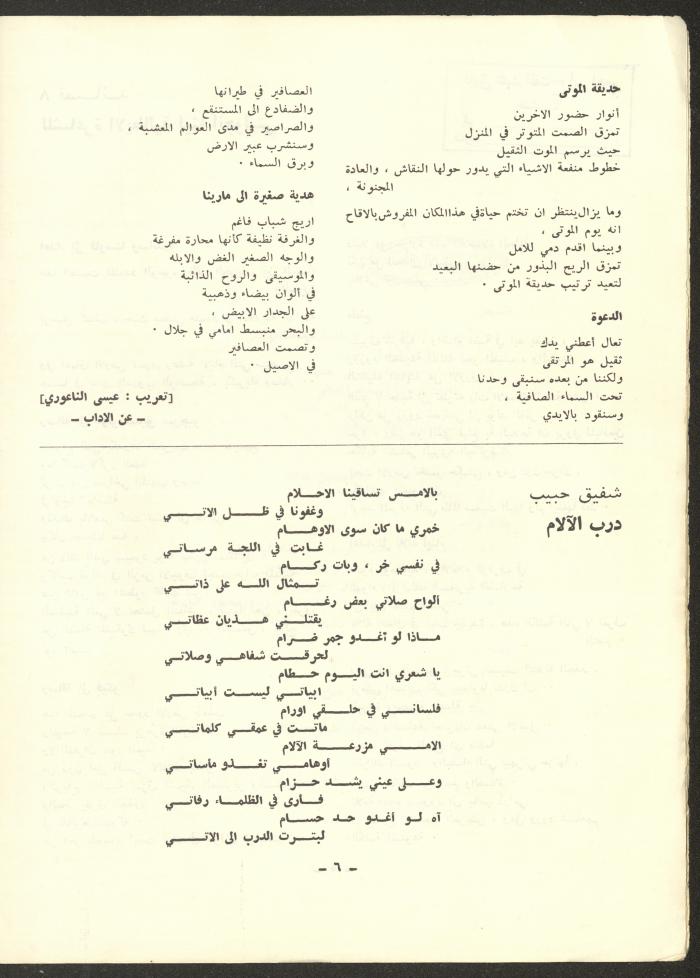 حديقة الموتى
أنوار حضور الاخرين
تمزق الصمت المتوتر في المنزل
حيث يرسم الموت الثقيل
خطوط منفعة الاشياء التي يدور حولها النقاش ، والعادة
المجنونة ،
وما يزال ينتظر ان تختم حياة في هذا المكان المفروش بالاقاح
انه يوم الموتى ،
وبينما اقدم دمي للامل
تمزق الريح البذور من حضنها البعيد
لتعيد ترتيب حديقة الموتى ٠
الدعوة
تعال أعطني يدك
ثقيل هو المرتقى
ولكننا من بعده سنبقى وحدنا
تحت السماء الصافية ،
وسنقود بالايدي
العصافير في طيرانها
والضفادع الى المستنقع ،
والصراصير في مدى العوالم المعشبة ،
وسنشرب عبير الارض
وبرق السماء ٠
هدية صغيرة الى مارينا
اريج شباب فاغم
والغرفة نظيفة كأنها محارة مفرغة
والوجه الصغير الغض والابله
والموسيقى والروح الذائبة
في ألوان بيضاء وذهبية
على الجدار الابيض ،
والبحر منبسط امامي في جلال ٠
وتصمت العصافير
في الاصيل ٠
[تعريب : عيسى الناعوري]
– عن الاداب –
شفيق حبيب
درب الآلام
بالامس تساقينا الاحلام
وغفونا في ظل الاتي
خمري ما كان سوى الاوهام
غابت في اللجة مرساتي
في نفسي خر ، وبات ركام
تمثال الله على ذاتي
ألواح صلاتي بعض رغام
يقتلني هذيان عظاتي
ماذا لو أغدو جمر ضرام
لحرقت شفاهي وصلاتي
يا شعري انت اليوم حطام
ابياتي ليست أبياتي
فلساني في حلقي اورام
ماتت في عمقي كلماتي
الامي مزرعة الآلام
أوهامي تغذو مأساتي
وعلى عيني يشد حزام
فأرى في الظلماء رفاتي
آه لو أغدو حد حسام
لبترت الدرب الى الاتي
– ٦ –